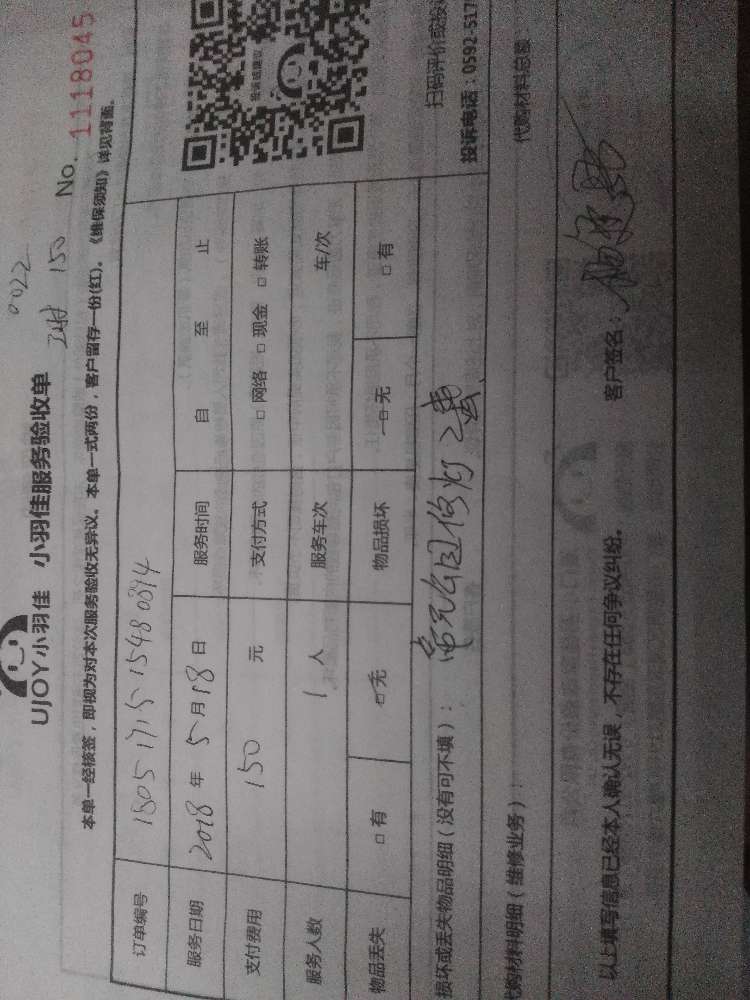 0022
150
UJOY小羽佳 小羽佳服务验收单
No. 1118045
本单一经核签，即视为对本次服务验收无异议。本单一式两份，客户留存一份(红)。《维保须知》详见背面。
订单编号 1805171515480894
服务日期 2018 年 5 月 18 日 服务时间 自 至 止
支付费用 150 元 支付方式 □ 网络 □ 现金 □ 转账
服务人数 1 人 服务车次 车/次
物品丢失 □ 有 □ 无 物品损坏 □ 无 □ 有
投诉或建议
扫码评价或投
投诉电话：0592-517
损坏或丢失物品明细（没有可不填）：
公园修灯
代购材料明细（维修业务）： 代购材料总额
以上填写信息已经本人确认无误，不存在任何争议纠纷。 客户签名：